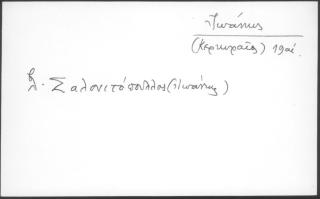 Ἰωάννης
(Κερκυραῖος) 19αἰ.
βλ. Σαλονιτόπουλλος (Ἰωάννης)